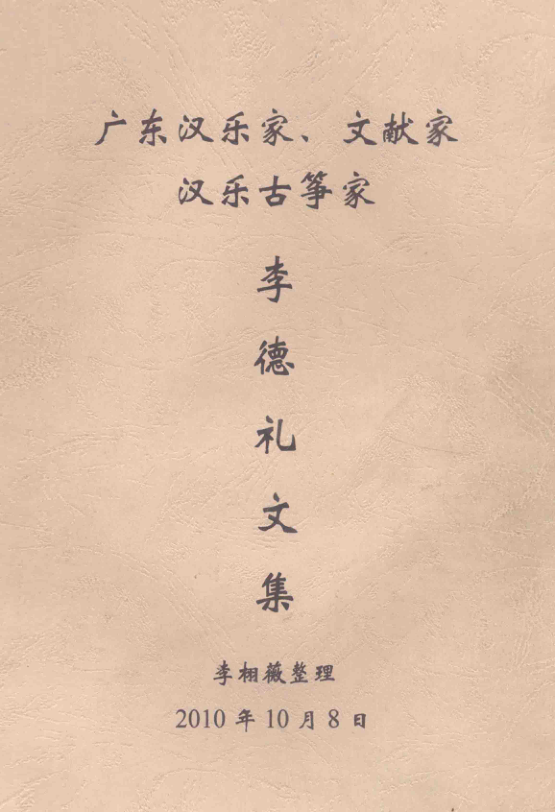 广东汉乐家、文献家
汉乐古筝家
李德礼文集
李栩薇整理
2010 年 10 月 8 日